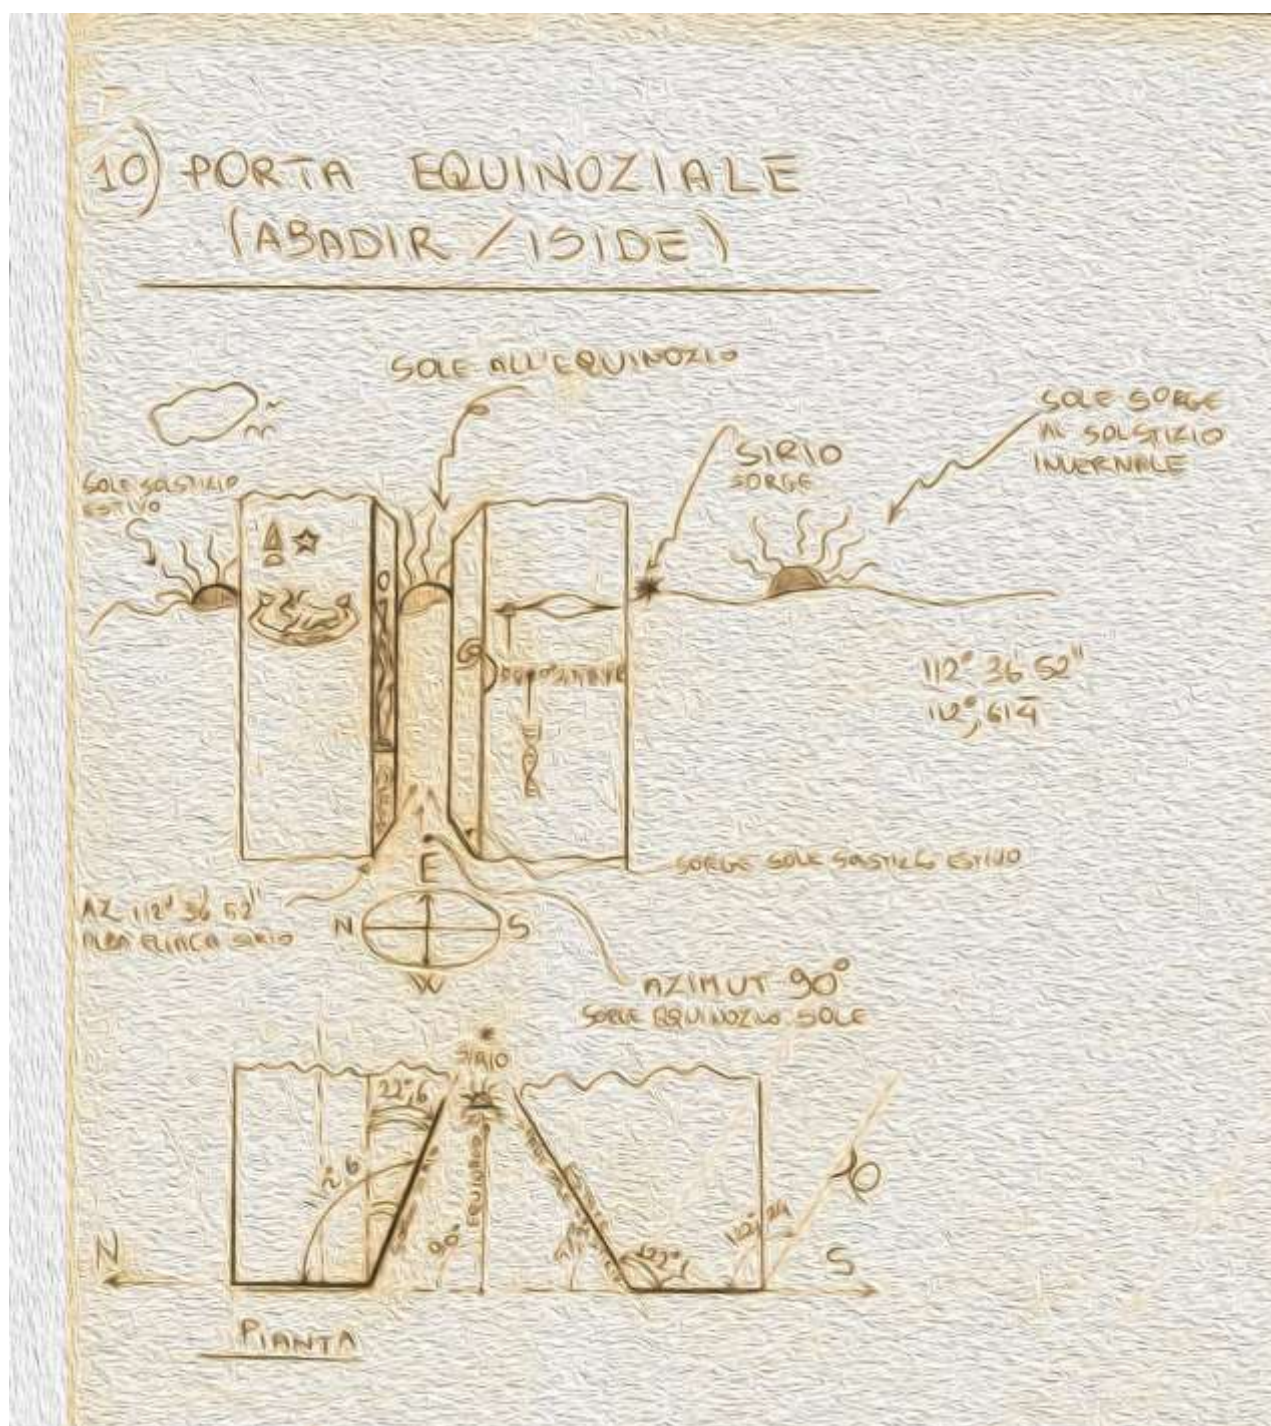 10) PORTA EQUINOZIALE
(ABADIR / ISIDE)
SOLE ALL'EQUINOZIO
SOLE SORGE
AL SOLSTIZIO
INVERNALE
SIRIO
SORGE
SOLE SOLSTIZIO
ESTIVO
112° 36' 52"
SORGE SOLE SOLSTIZIO ESTIVO
E
AZ 112° 36' 52"
ALBA ELIACA SIRIO
N
S
W
AZIMUT 90°
SORGE EQUINOZIO SOLE
SIRIO
22°,6
EQUINOZIO
90°
N
S
PIANTA